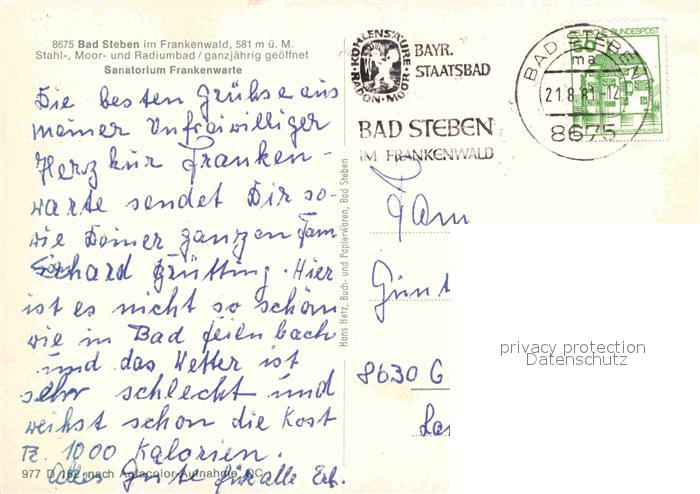 8675 Bad Steben im Frankenwald, 581 m ü. M.
Stahl-, Moor- und Radiumbad / ganzjährig geöffnet
Sanatorium Frankenwarte
Die besten Grühse aus
meiner Unfreiwilliger
Herz kur Franken-
warte sendet Dir so-
wie Deiner ganzen Fam
Grütting. Hier
ist es nicht so schön
wie in Bad feilenbach
und das Wetter ist
sehr schlecht und
weihst schon die Kost
1000 Kalorien.
Alles Gute für alle
977 D 162 nach Agfacolor-Aufnahme
Hans Hetz, Buch- und Papierwaren, Bad Steben
KOHLENSÄURE · RADON · MOOR
BAYR.
STAATSBAD
BAD STEBEN
IM FRANKENWALD
BAD STEBEN
ma
21.8.81-12
8675
DEUTSCHE BUNDESPOST
50
Fam
Günt
8630 C
privacy protection
Datenschutz